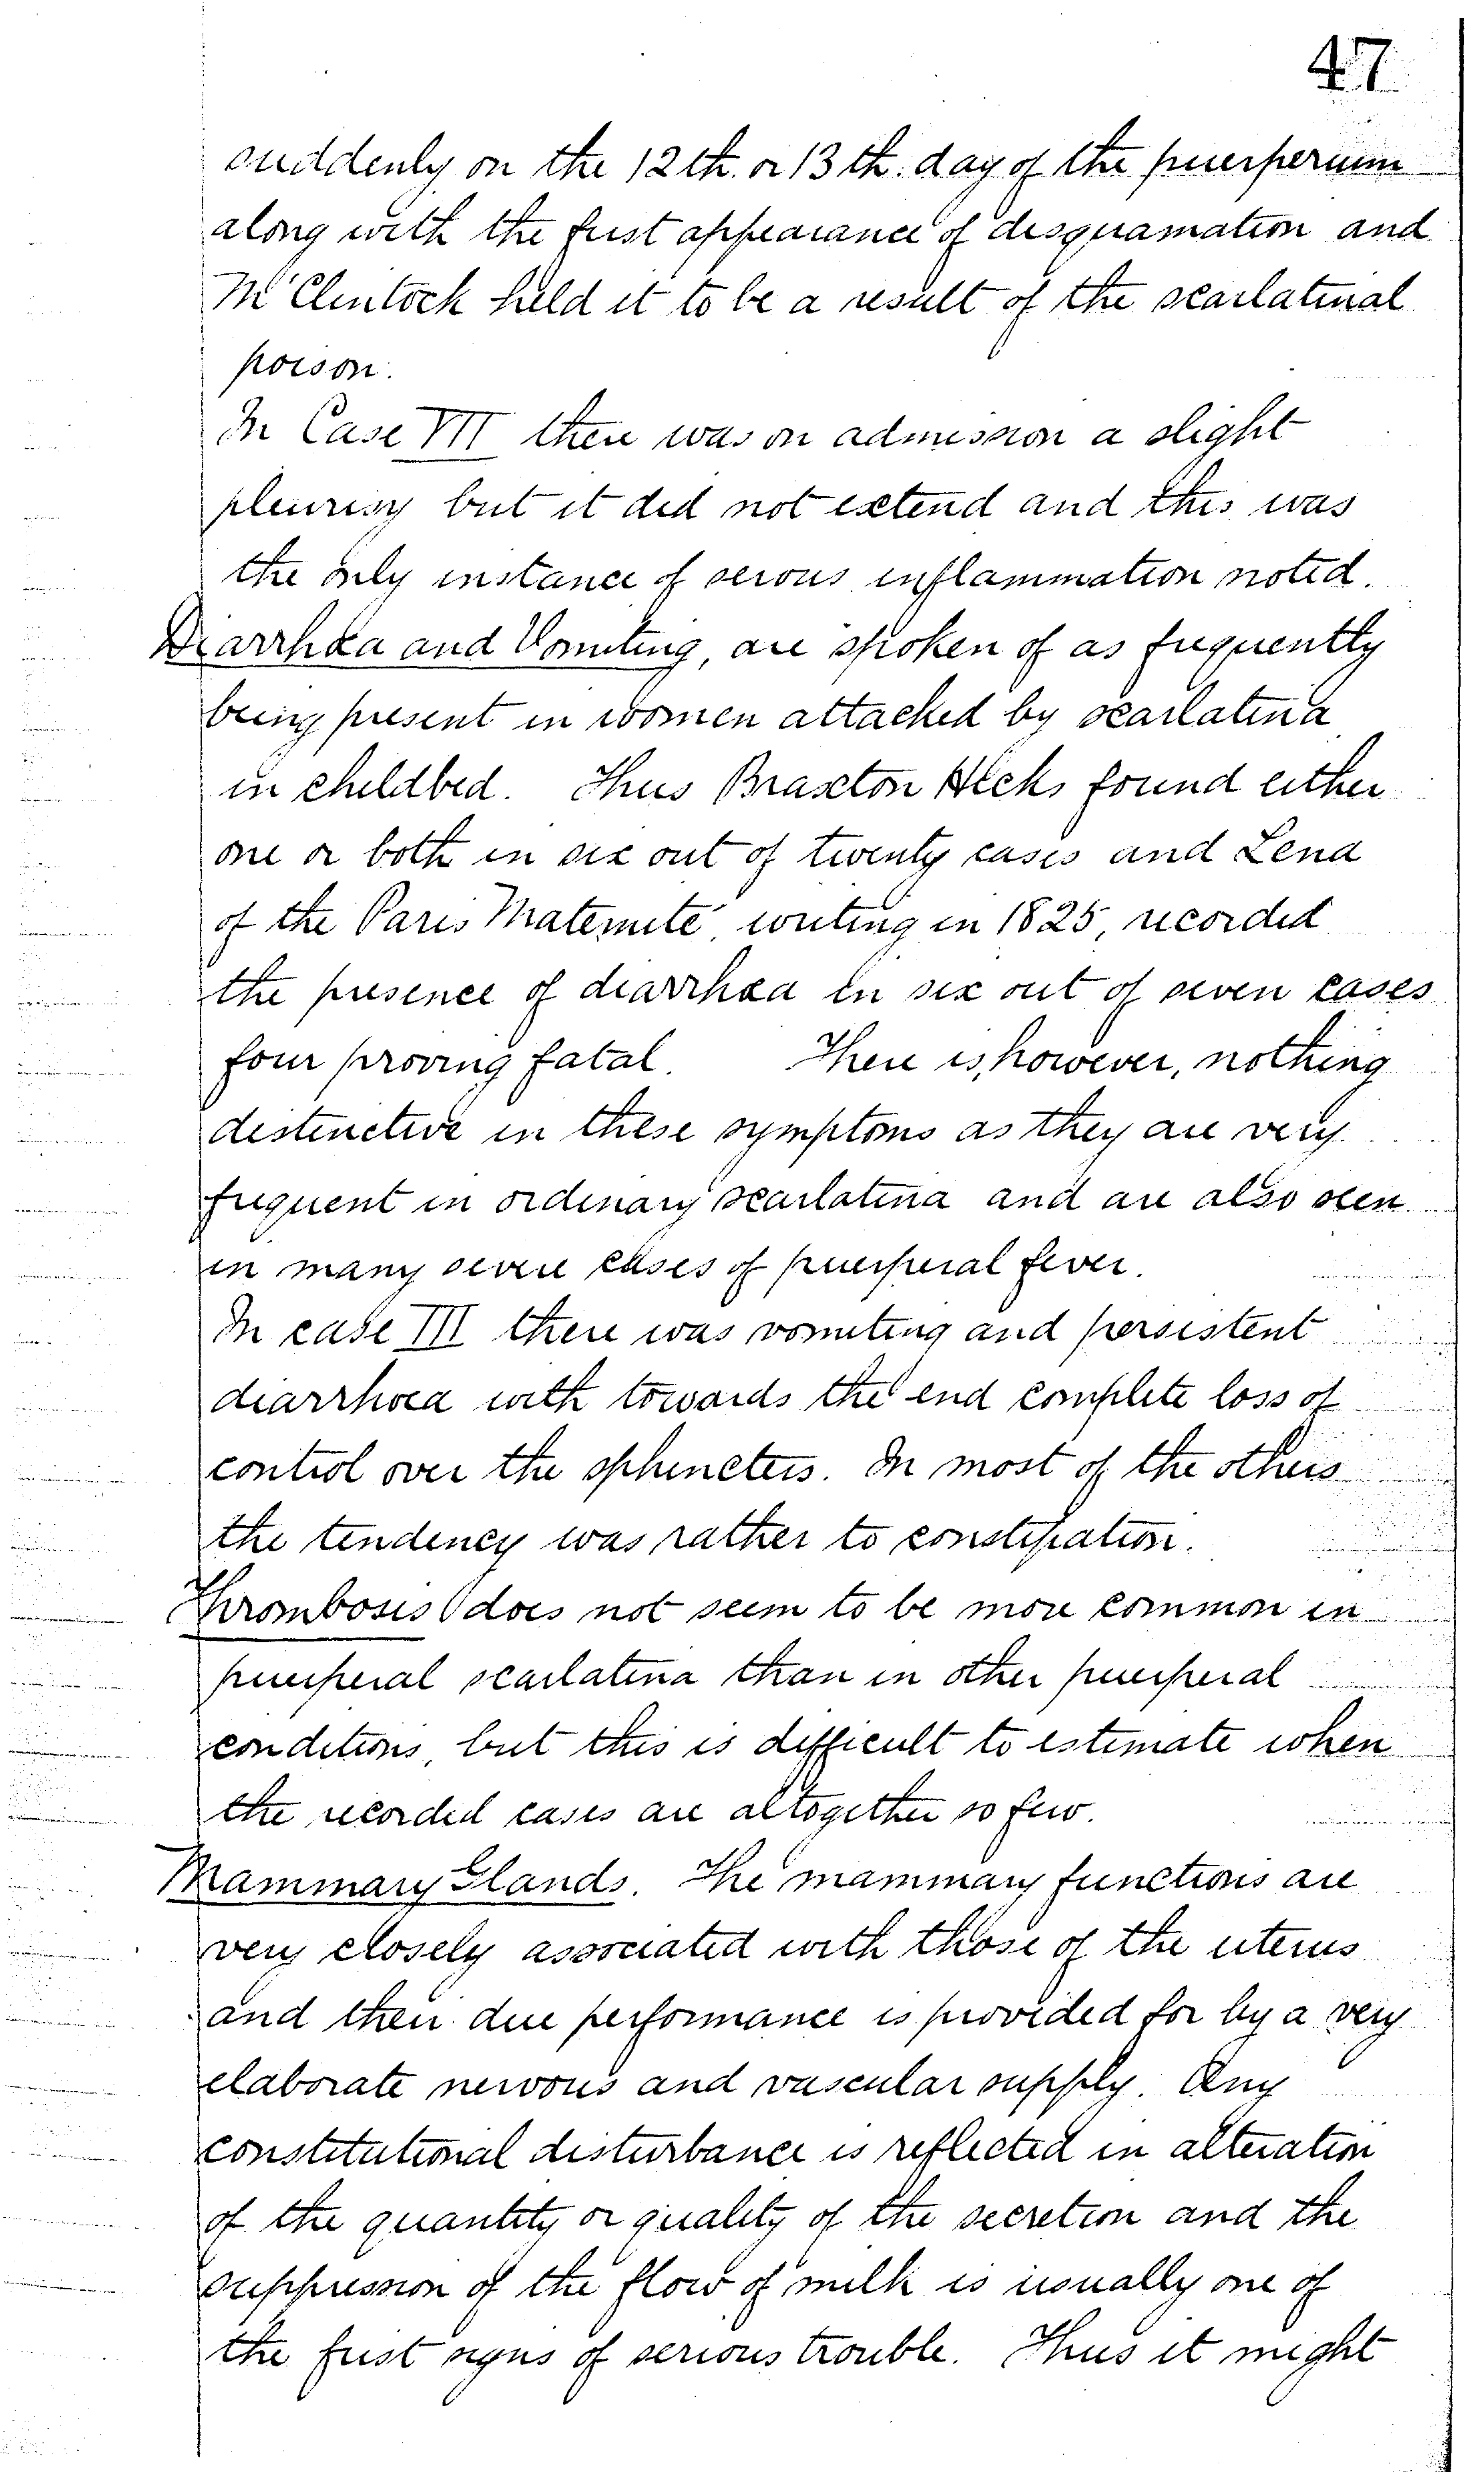 47
suddenly on the 12th. or 13th. day of the puerperium
along with the first appearance of desquamation and
McClintock held it to be a result of the scarlatinal
poison.
In Case VII there was on admission a slight
pleurisy but it did not extend and this was
the only instance of serous inflammation noted.
Diarrhœa and Vomiting, are spoken of as frequently
being present in women attacked by scarlatina
in childbed. Thus Braxton Hicks found either
one or both in six out of twenty cases and Lena
of the Paris Maternité, writing in 1825, recorded
the presence of diarrhœa in six out of seven cases
four proving fatal. There is, however, nothing
distinctive in these symptoms as they are very
frequent in ordinary scarlatina and are also seen
in many severe cases of puerperal fever.
In case III there was vomiting and persistent
diarrhœa with towards the end complete loss of
control over the sphincters. In most of the others
the tendency was rather to constipation.
Thrombosis does not seem to be more common in
puerperal scarlatina than in other puerperal
conditions, but this is difficult to estimate when
the recorded cases are altogether so few.
Mammary Glands. The mammary functions are
very closely associated with those of the uterus
and their due performance is provided for by a very
elaborate nervous and vascular supply. Any
constitutional disturbance is reflected in alteration
of the quantity or quality of the secretion and the
suppression of the flow of milk is usually one of
the first signs of serious trouble. Thus it might